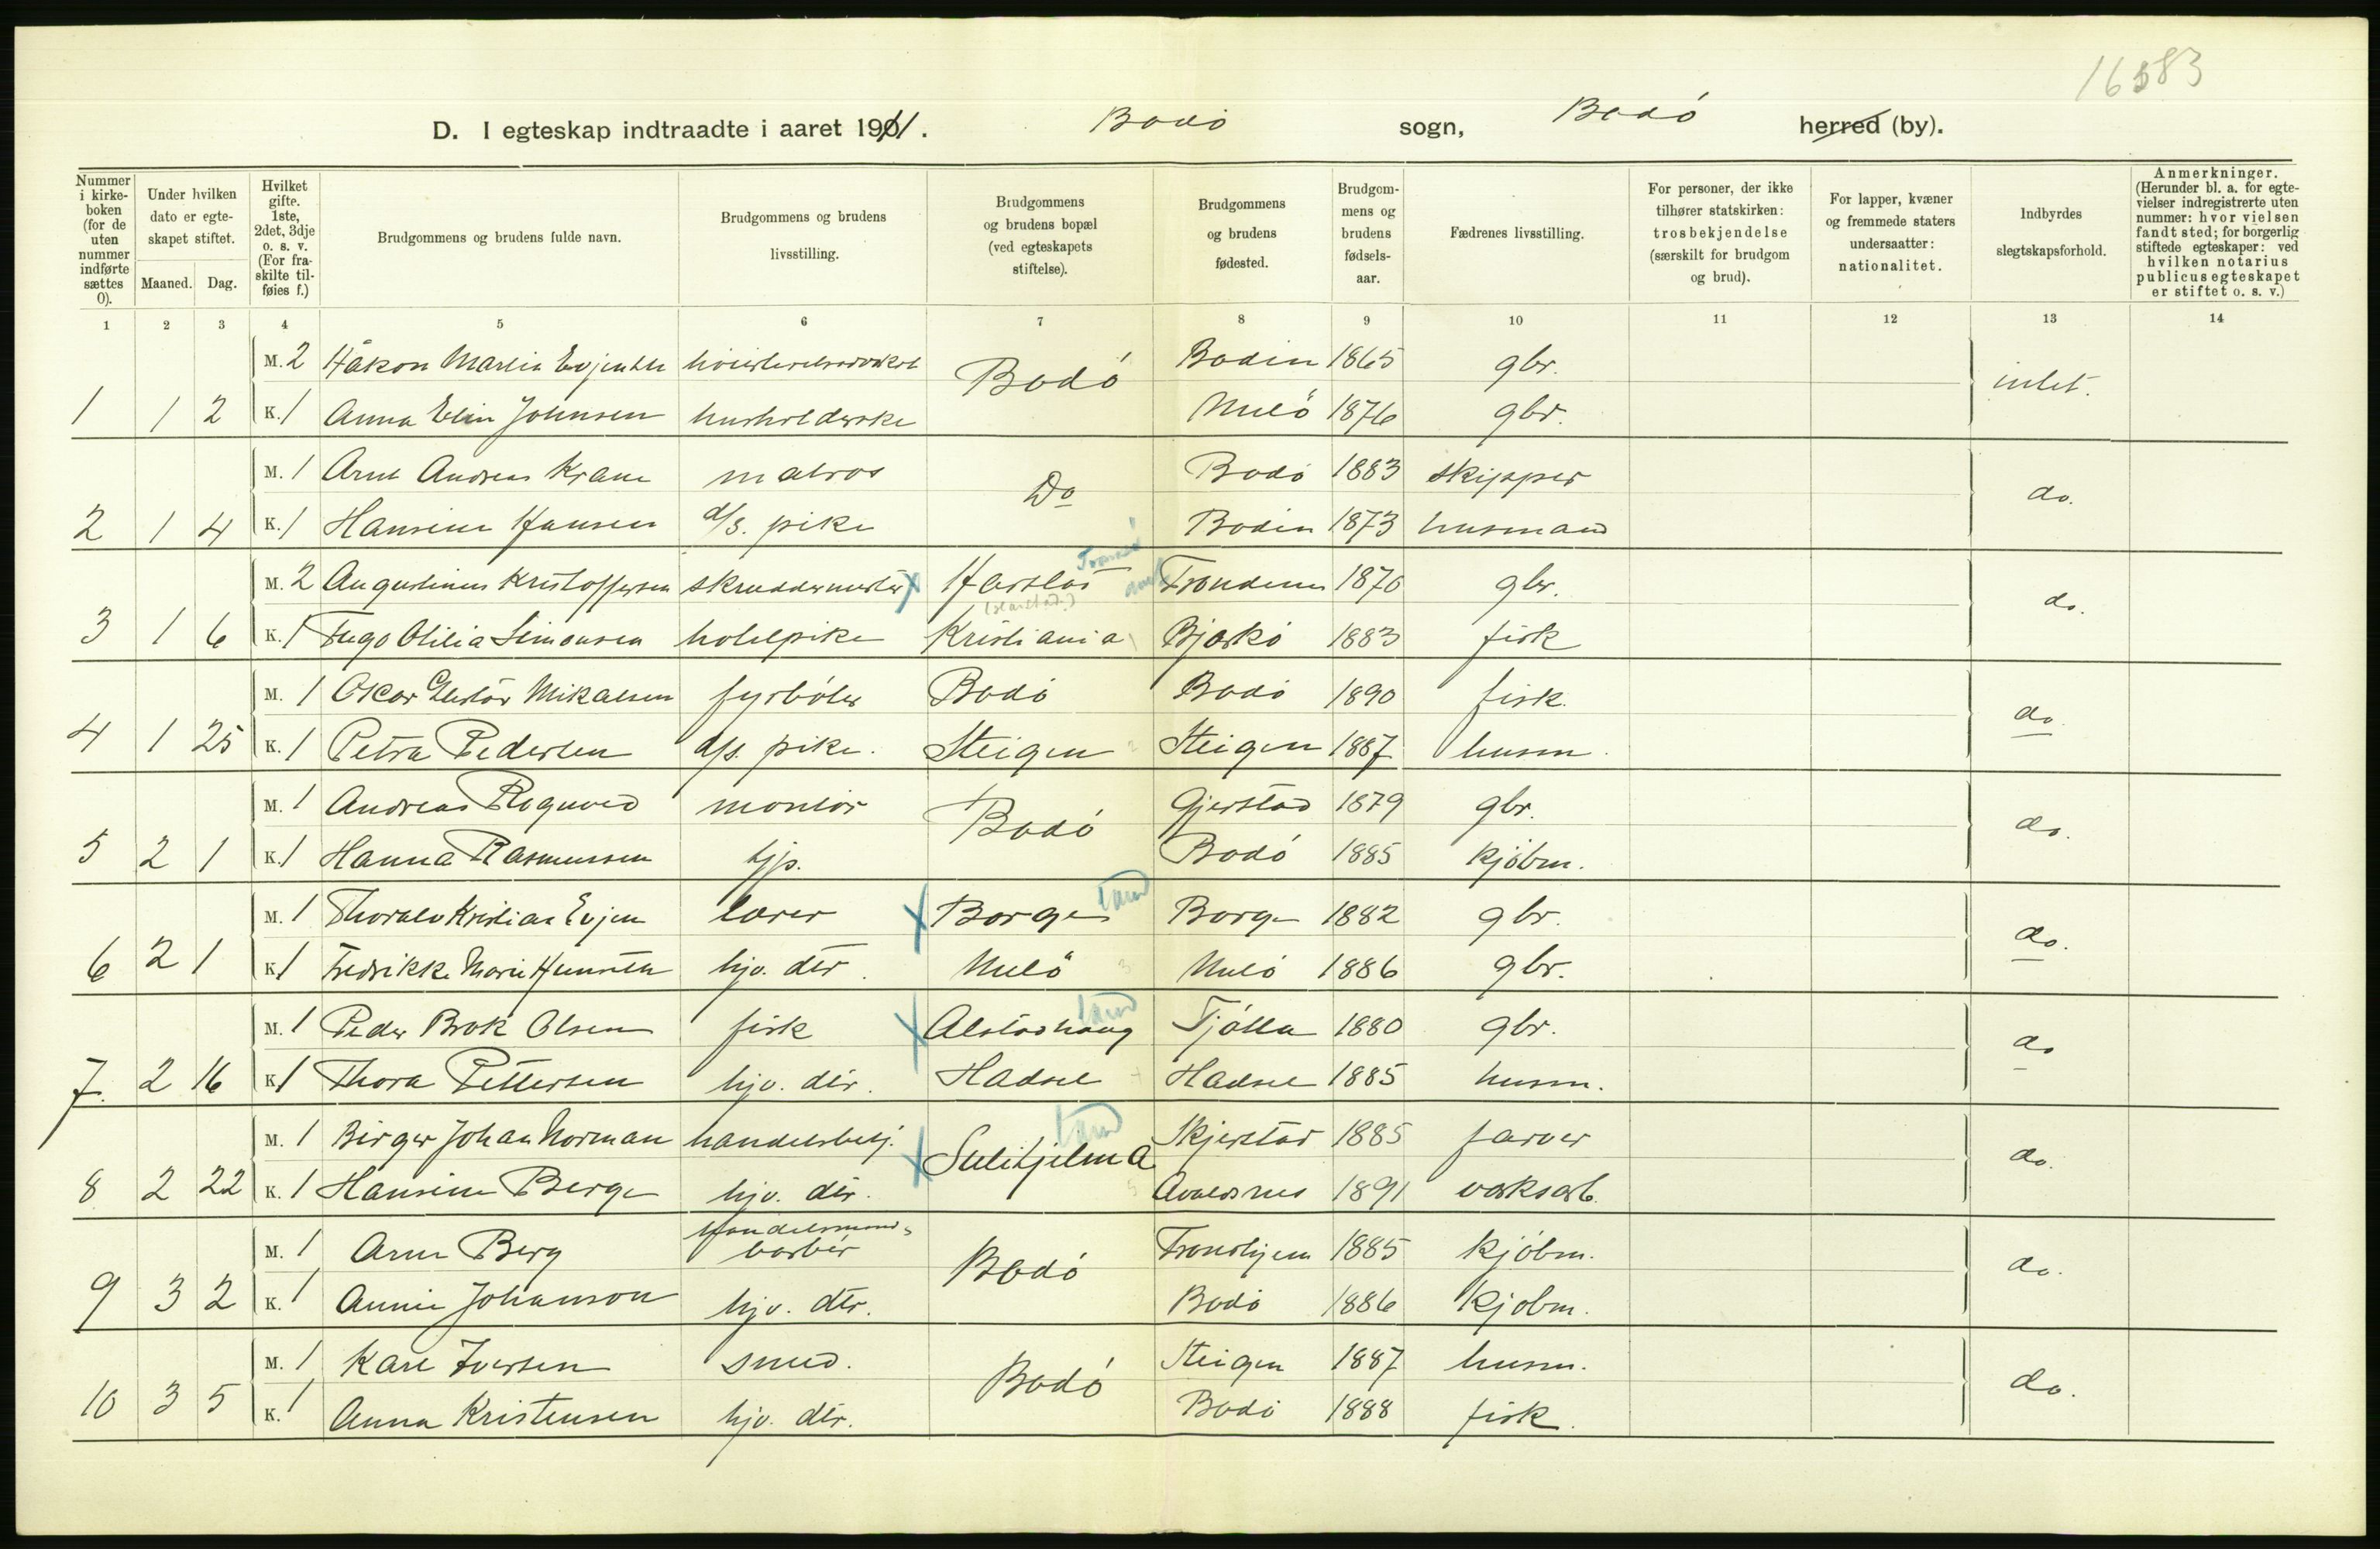 16583
D. I egteskap indtraadte i aaret 1911. Bodö sogn, Bodö herred (by).
Nummer i kirkeboken (for de uten nummer indførte sættes 0).
Under hvilken dato er egteskapet stiftet.
Maaned. Dag.
Hvilket gifte. 1ste, 2det, 3dje o. s. v. (For fraskilte tilføies f.)
Brudgommens og brudens fulde navn.
Brudgommens og brudens livsstilling.
Brudgommens og brudens bopæl (ved egteskapets stiftelse).
Brudgommens og brudens fødested.
Brudgommens og brudens fødselsaar.
Fædrenes livsstilling.
For personer, der ikke tilhører statskirken: trosbekjendelse (særskilt for brudgom og brud).
For lapper, kvæner og fremmede staters undersaatter: nationalitet.
Indbyrdes slegtskapsforhold.
Anmerkninger. (Herunder bl. a. for egtevielser indregistrerte uten nummer: hvor vielsen fandt sted; for borgerlig stiftede egteskaper: ved hvilken notarius publicus egteskapet er stiftet o. s. v.)
1 2 3 4 5 6 7 8 9 10 11 12 13 14
M. 2 Håkon Martin Evjenth Bodö Bodin 1865 gbr. intet.
1 1 2 K. 1 Anna Elin Johnsen husholderske 1876 gbr.
M. 1 Arnt Andreas Krane matros Do Bodö 1883 skipper do.
2 1 4 K. 1 Hansine Hansen d/s. pike Bodin 1873 husmand
M. 2 Augustinus Kristoffersen skreddermester x Harstad Tromsö amt Trondenes 1870 gbr. do.
(Harstad?)
3 1 6 K. 1 Otilia Simonsen hotelpike Kristiania Bjarkö 1883 fisk
M. 1 Oskar Gustav Mikalsen fyrböter Bodö Bodö 1890 fisk. do.
4 1 25 K. 1 Petra Pedersen d/s. pike. Steigen Steigen 1887 husm.
M. 1 Andreas Rognved montör Bodö Gjerstad 1879 gbr. do.
5 2 1 K. 1 Hanna Rasmussen tjp. Bodö 1885 kjöbm.
M. 1 Thoralv Kristian Evjen lærer x Borge land Borge 1882 gbr. do.
6 2 1 K. 1 Fredrikke Marie hjv. dtr. 1886 gbr.
M. 1 Peder Brok Olsen fisk x Alstadhaug land Tjötta 1880 gbr. do
7. 2 16 K. 1 Thora Pettersen hjv. dtr. Hadsel Hadsel 1885 husm.
M. 1 Birger Johan Norman handelsbetj. x Sulitjelma land Skjerstad 1885 farver do.
8 2 22 K. 1 Hansine Berge hjv. dtr. Avaldsnes 1891 verksarb.
handelsmand,
M. 1 Arne Berg barbér Bodö Trondhjem 1885 kjöbm. do.
9 3 2 K. 1 Annie Johanson hjv. dtr. Bodö 1886 kjöbm.
M. 1 Karl Iversen smed. Bodö Steigen 1887 husm. do.
10 3 5 K. 1 Anna Kristensen hjv. dtr. Bodö 1888 fisk.